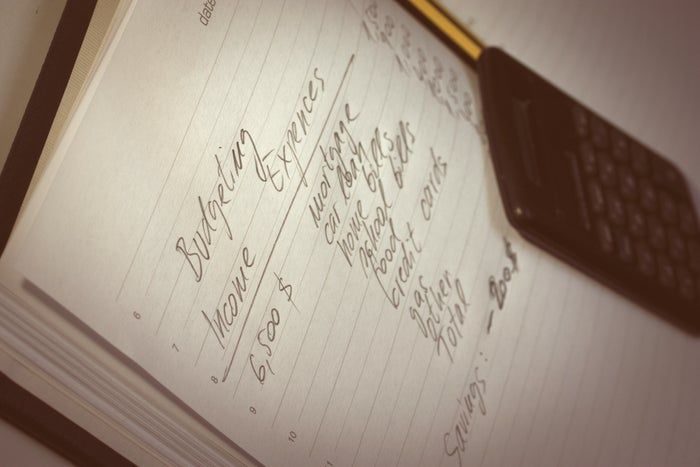 date
Budgeting
Income Expences
6,500 $ mortgage
car loan
home bills
school bills
food
credit cards
gas
other
Total
Savings: - 200$
6
7
8
9
10